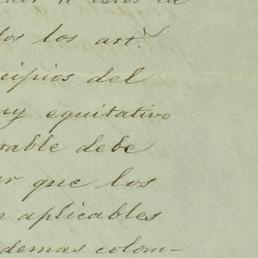 los los art.s
cipios del
uy equitativo
rable debe
er que los
n aplicables
demas colom-